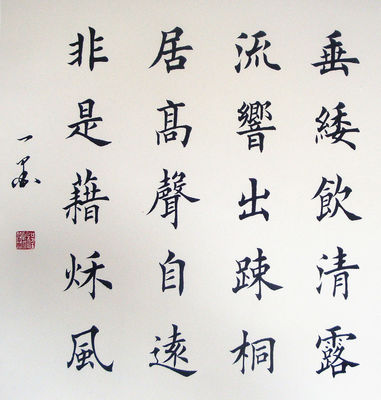 垂緌飲清露
流響出踈桐
居髙聲自遠
非是藉秌風
一墨